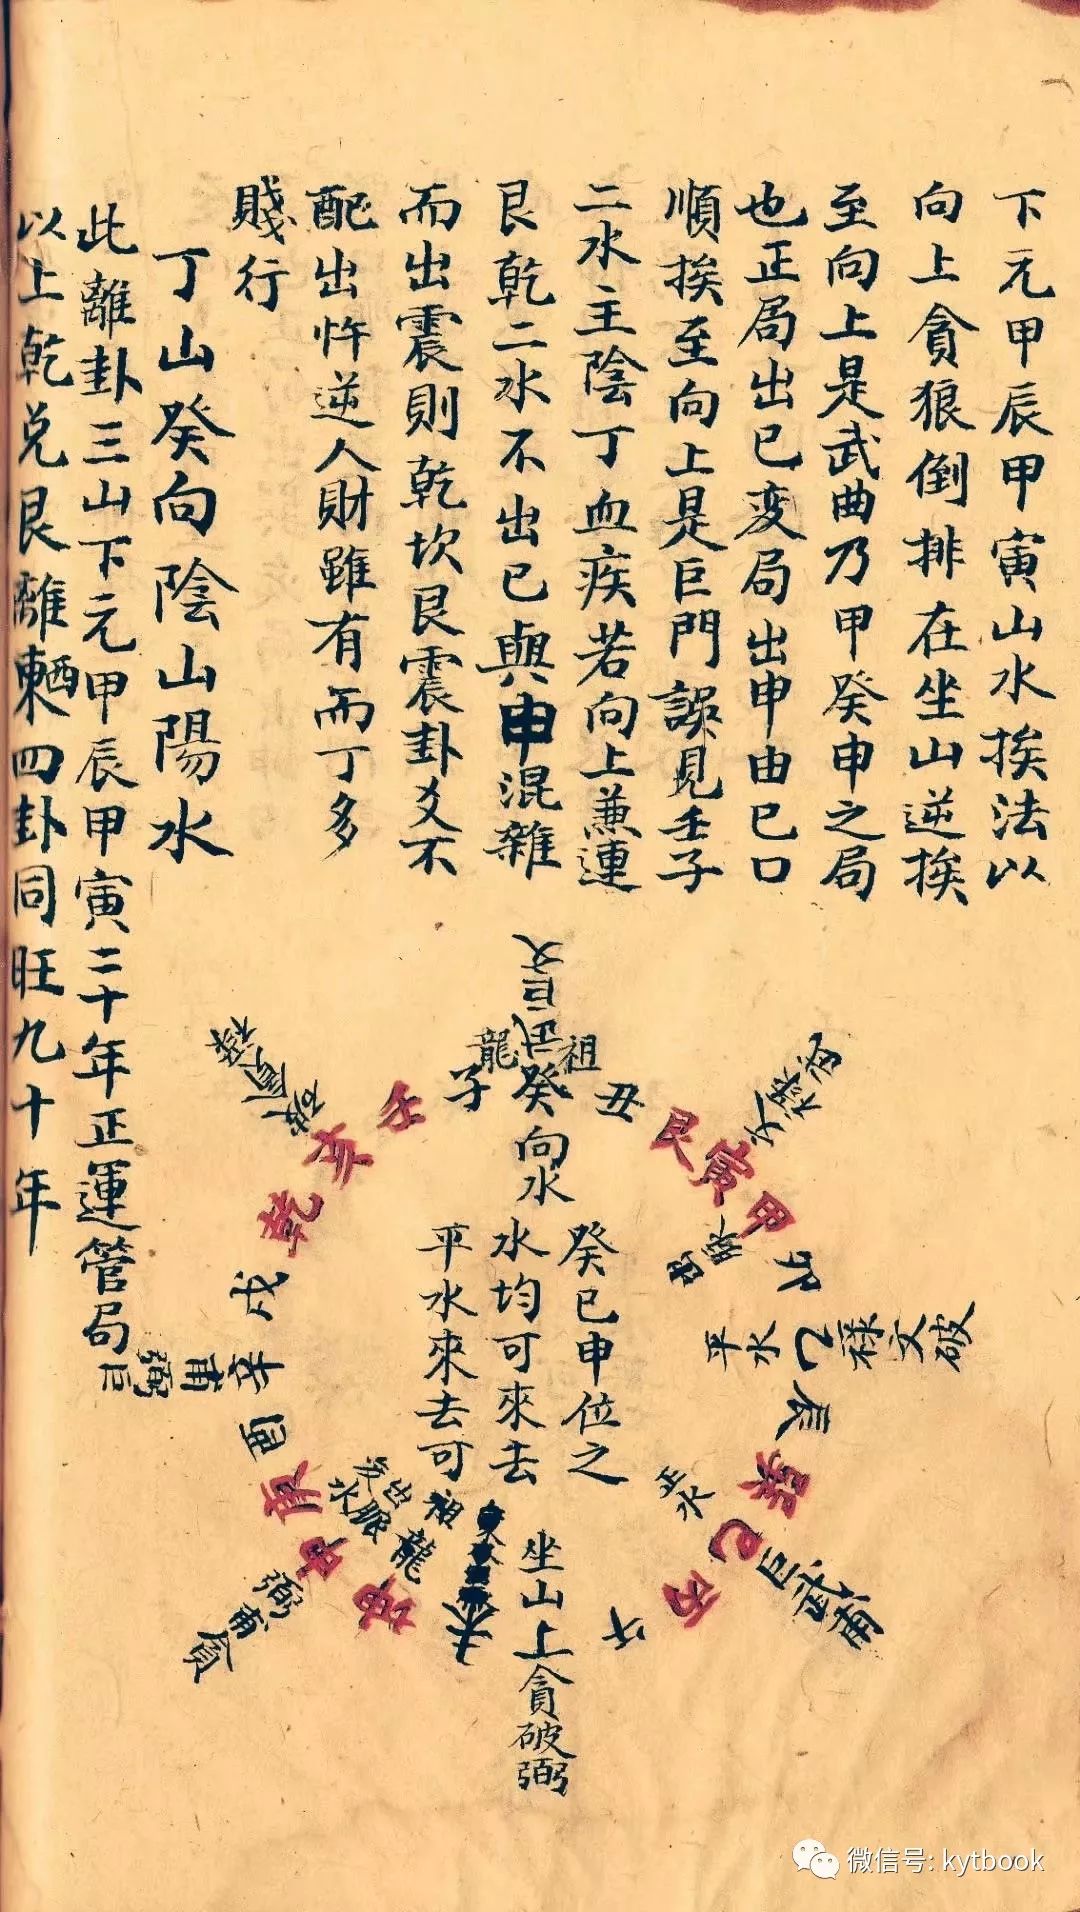 下元甲辰甲寅山水挨法以
向上貪狼倒排在坐山逆挨
至向上是武曲乃甲癸申之局
也正局出巳变局出申由巳口
順挨至向上是巨門誤見壬子
二水主陰丁血疾若向上兼連
艮乾二水不出巳與申混雜
而出震則乾坎艮震卦爻不
配出忤逆人財雖有而丁多
賤行
丁山癸向陰山陽水
此離卦三山下元甲辰甲寅二十年正運管局
以上乾兌艮離四卦同旺九十年
文巨武
祖龍
癸向水
癸巳申位之
水均可來去
平水來去可
子
丑
艮
寅
甲
乙
祿文破
平水
辰
巽
巳
巨武甫
正水
丙
午
坐山丁貪破弼
未
坤
申
庚
祖龍
弼甫貪
酉
辛
甫弼巨
戌
乾
亥
壬
微信号: kytbook